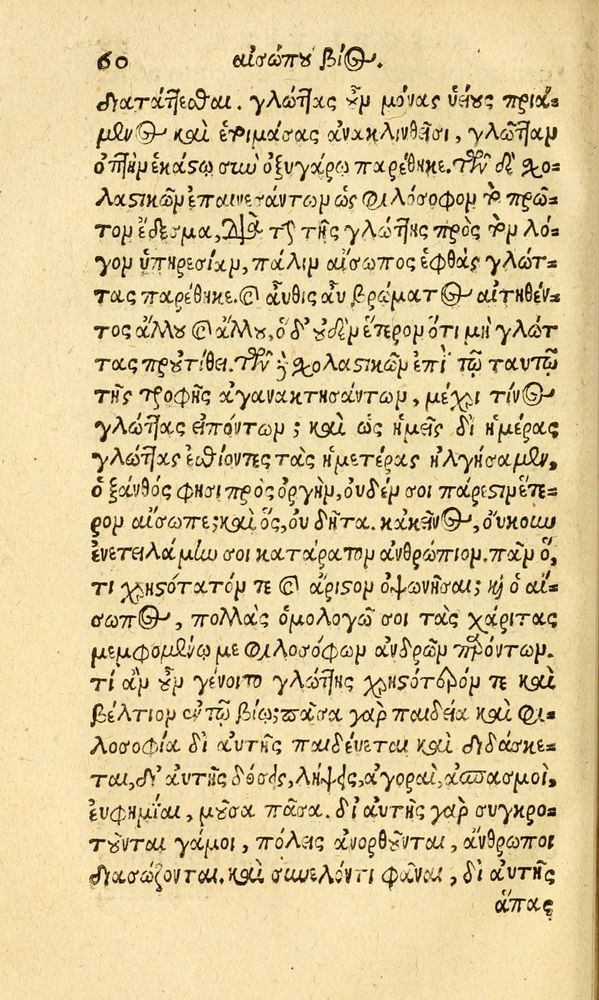 60 αἰσώπου βίος.
διατάττεσθαι. γλώττας οὖν μόνας ὑείους πριά-
μενος καὶ ἑτοιμάσας ἀνακλινθεῖσι, γλῶτταν
ὀπτὴν ἑκάστῳ σὺν ὀξυγάρῳ παρέθηκε. τῶν δὲ χο-
λαστικῶν ἐπαινεσάντων ὡς φιλόσοφον τὸ πρῶ-
τον ἔδεσμα, διὰ τὴν τῆς γλώττης πρὸς τὸν λό-
γον ὑπηρεσίαν, πάλιν αἴσωπος ἑφθὰς γλώτ-
τας παρέθηκε. καὶ αὖθις αὖ βρώματος αἰτηθέν-
τος ἄλλου καὶ ἄλλου, ὁ δ' οὐδὲν ἕτερον ὅτι μὴ γλώτ
τας προὐτίθει. τῶν δὲ χολαστικῶν ἐπὶ τῷ ταυτῷ
τῆς τροφῆς ἀγανακτησάντων, μέχρι τίνος
γλώττας εἰπόντων; καὶ ὡς ἡμεῖς δι' ἡμέρας
γλώττας ἐσθίοντες τὰς ἡμετέρας ἠλγήσαμεν,
ὁ ξάνθός φησι πρὸς ὀργὴν, οὐδέν σοι πάρεστιν ἕτε-
ρον αἴσωπε; καὶ ὃς, οὐ δῆτα. κἀκεῖνος, οὔκουν
ἐνετειλάμην σοι κατάρατον ἀνθρώπιον. πᾶν ὅ,
τι χρηστότατόν τε καὶ ἄριστον ὀψωνῆσαι; καὶ ὁ αἴ-
σωπος, πολλὰς ὁμολογῶ σοι τὰς χάριτας
μεμφομένῳ με φιλοσόφων ἀνδρῶν παρόντων.
τί ἂν οὖν γένοιτο γλώττης χρηστότερόν τε καὶ
βέλτιον ἐν τῷ βίῳ; πᾶσα γὰρ παιδεία καὶ φι-
λοσοφία δι' αὐτῆς παιδεύεται καὶ διδάσκε-
ται, δι' αὐτῆς δόσεις, λήψεις, ἀγοραὶ, ἀσπασμοὶ,
εὐφημίαι, μοῦσα πᾶσα. δι' αὐτῆς γὰρ συγκρο-
τοῦνται γάμοι, πόλεις ἀνορθοῦνται, ἄνθρωποι
διασώζονται. καὶ συνελόντι φάναι, δι' αὐτῆς
ἅπας